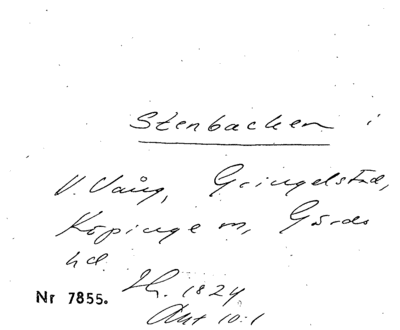 Stenbacken i
V. Vång, Gringelstad,
Köpinge sn, Gärds
hd.
Nr 7855.
1824
Akt 10:1